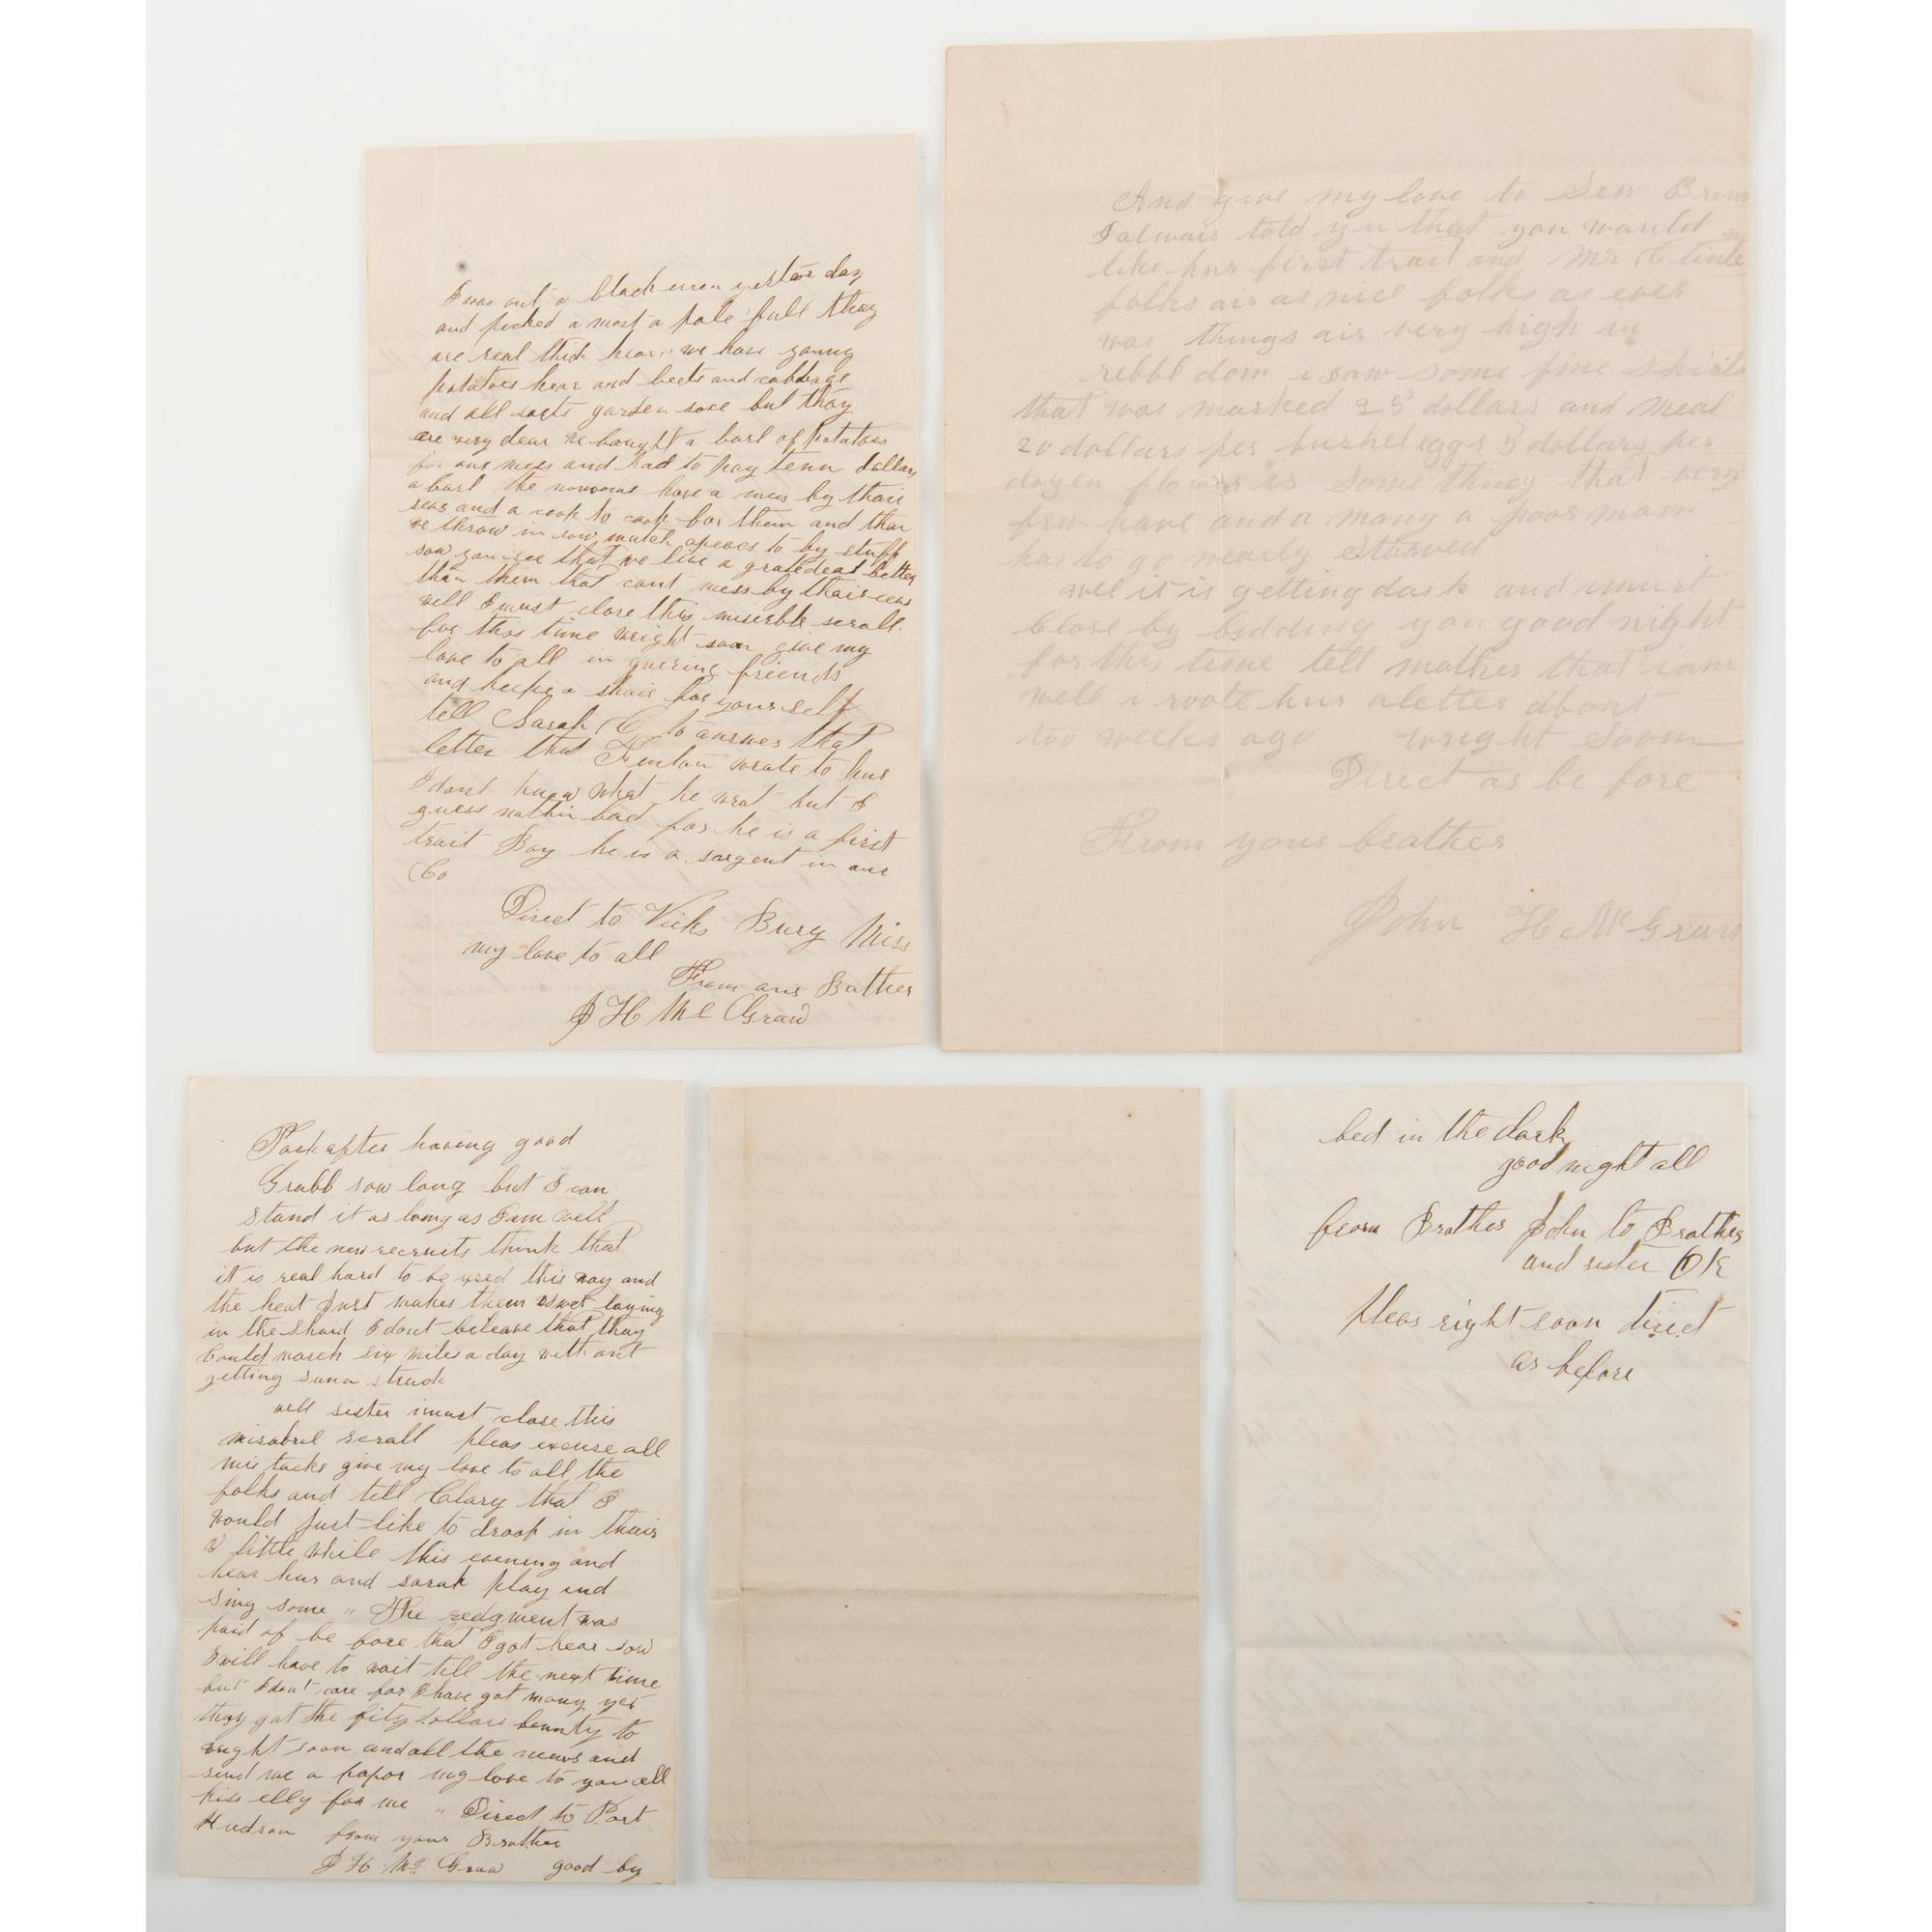 I was out a black uren yestar day
and picked a most a pale full thay
are real thick hear we have young
potatoes hear and beets and cabbage
and all sorts garden sose but thay
are very dear we bought a barl of potatoes
for our mess and had to pay tenn dallars
a barl the noncoms have a mess by thair
sevs and a cook to cook for them and than
we throw in sow mutch apeaes to by stuff
sow you see that we live a gratedeal better
than them that cant mess by thairsevs
well I must close this miserble scrall
for this time wright soon give my
love to all in quering friends
and keepe a shair for yourself
tell Sarah C to answer that
letter that Fenton wrate to hur
I dont know what he wrat but I
guess nothin bad for he is a first
trait Boy he is a sargent in our
Co
Direct to Vicks Burg Miss
my love to all
From our Bather
J H Mc Graw
And give my love to Sew Brown
I alwais told you that you would
like hur first trait and Mr Clinte
folks air as nice folks as ever
was things air very high in
rebbl dom i saw some fine shirts
that was marked 25 dollars and meal
20 dollars per bushel eggs 5 dollars per
dozen flower is some thing that very
few have and a many a poor man
has to go nearly starved
well it is getting dark and i must
Close by bidding you good night
for this time tell mother that i am
well i roote hur a letter about
too weeks ago wright soon
Direct as be fore
From your brather
John H McGraw
Tack after having good
Grubb sow long but I can
stand it as long as I am well
but the new recruits think that
it is real hard to be used this way and
the heat Just makes them swet laying
in the shaid I dont beleave that thay
Could march six miles a day with out
getting sunn struck
well sister i must close this
misabrel scrall pleas excuse all
mis tacks give my love to all the
folks and tell Clary that I
would Just like to droop in thair
a little while this evening and
hear hur and sarah play and
sing some " The redgment was
paid of be fore that I got hear sow
I will have to wait till the next time
but I don't care for I have got mony yet
thay got the fifty dollars bounty to
wright soon and all the news and
send me a papor my love to you all
kiss elly for me " Direct to Port
Hudson from your Brather
J H Mc Graw good by
bed in the dark
good night all
from Brather John to Brather
and sister O K
pleas right soon direct
as before